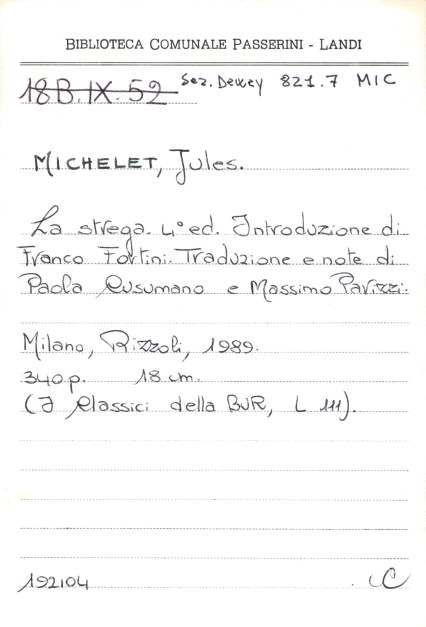 BIBLIOTECA COMUNALE PASSERINI - LANDI
18B.IX.52 Sez. Dewey 821.7 MIC
MICHELET, Jules.
La strega. 4° ed. Introduzione di
Franco Fortini. Traduzione e note di
Paola Cusumano e Massimo Parizzi.
Milano, Rizzoli, 1989.
340 p. 18 cm.
(I Classici della BUR, L 111).
192104 C